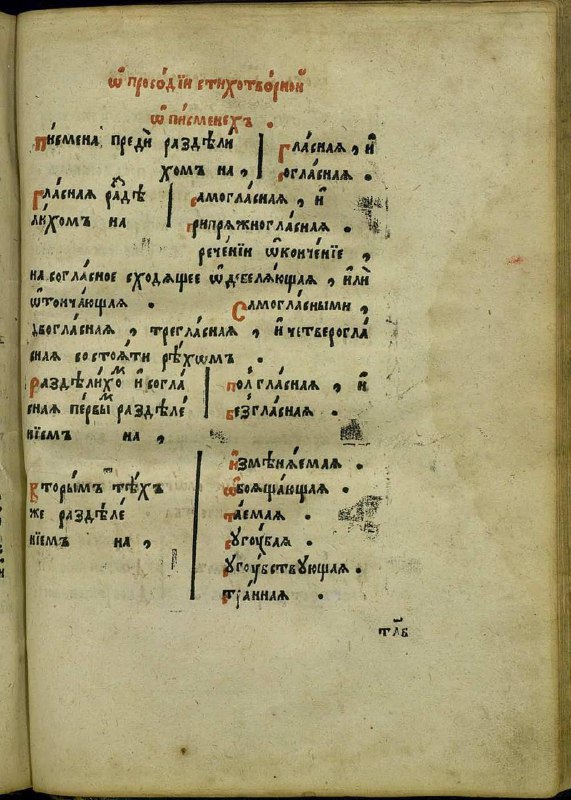 Ѿ просѡ́дїи стихотво́рной
Ѿ пи́сменехъ .
Пи́смена̀ преди раздѣли
хомъ на , гла́сная , и҆
согла́сная .
Гла́сная раздѣ
ли́хомъ на самогла́сная , и҆
припряжногла́сная .
рече́нїи ѡ҆конче́нїе ,
на согла́сное сходящее ѡ҆дебеля́ющая , и҆лѝ
ѿонча́ющая . Самогла́сными ,
двогла́сная , трегла́сная , и҆ четверогла
сная состоя́ти рѣ́хѡмъ .
Раздѣли́хом и҆ согла
сная пе́рвым раздѣле́
нїемъ на , пол̾гла́сная , и҆
безгла́сная .
Вторы́мъ тѣ́хъ
же раздѣле́
нїемъ на , и҆змѣня́емая .
ѡ҆боюща́ющая .
та́емая .
сугꙋ́бая .
сугꙋ́бствующая .
стра́нная .
тлв